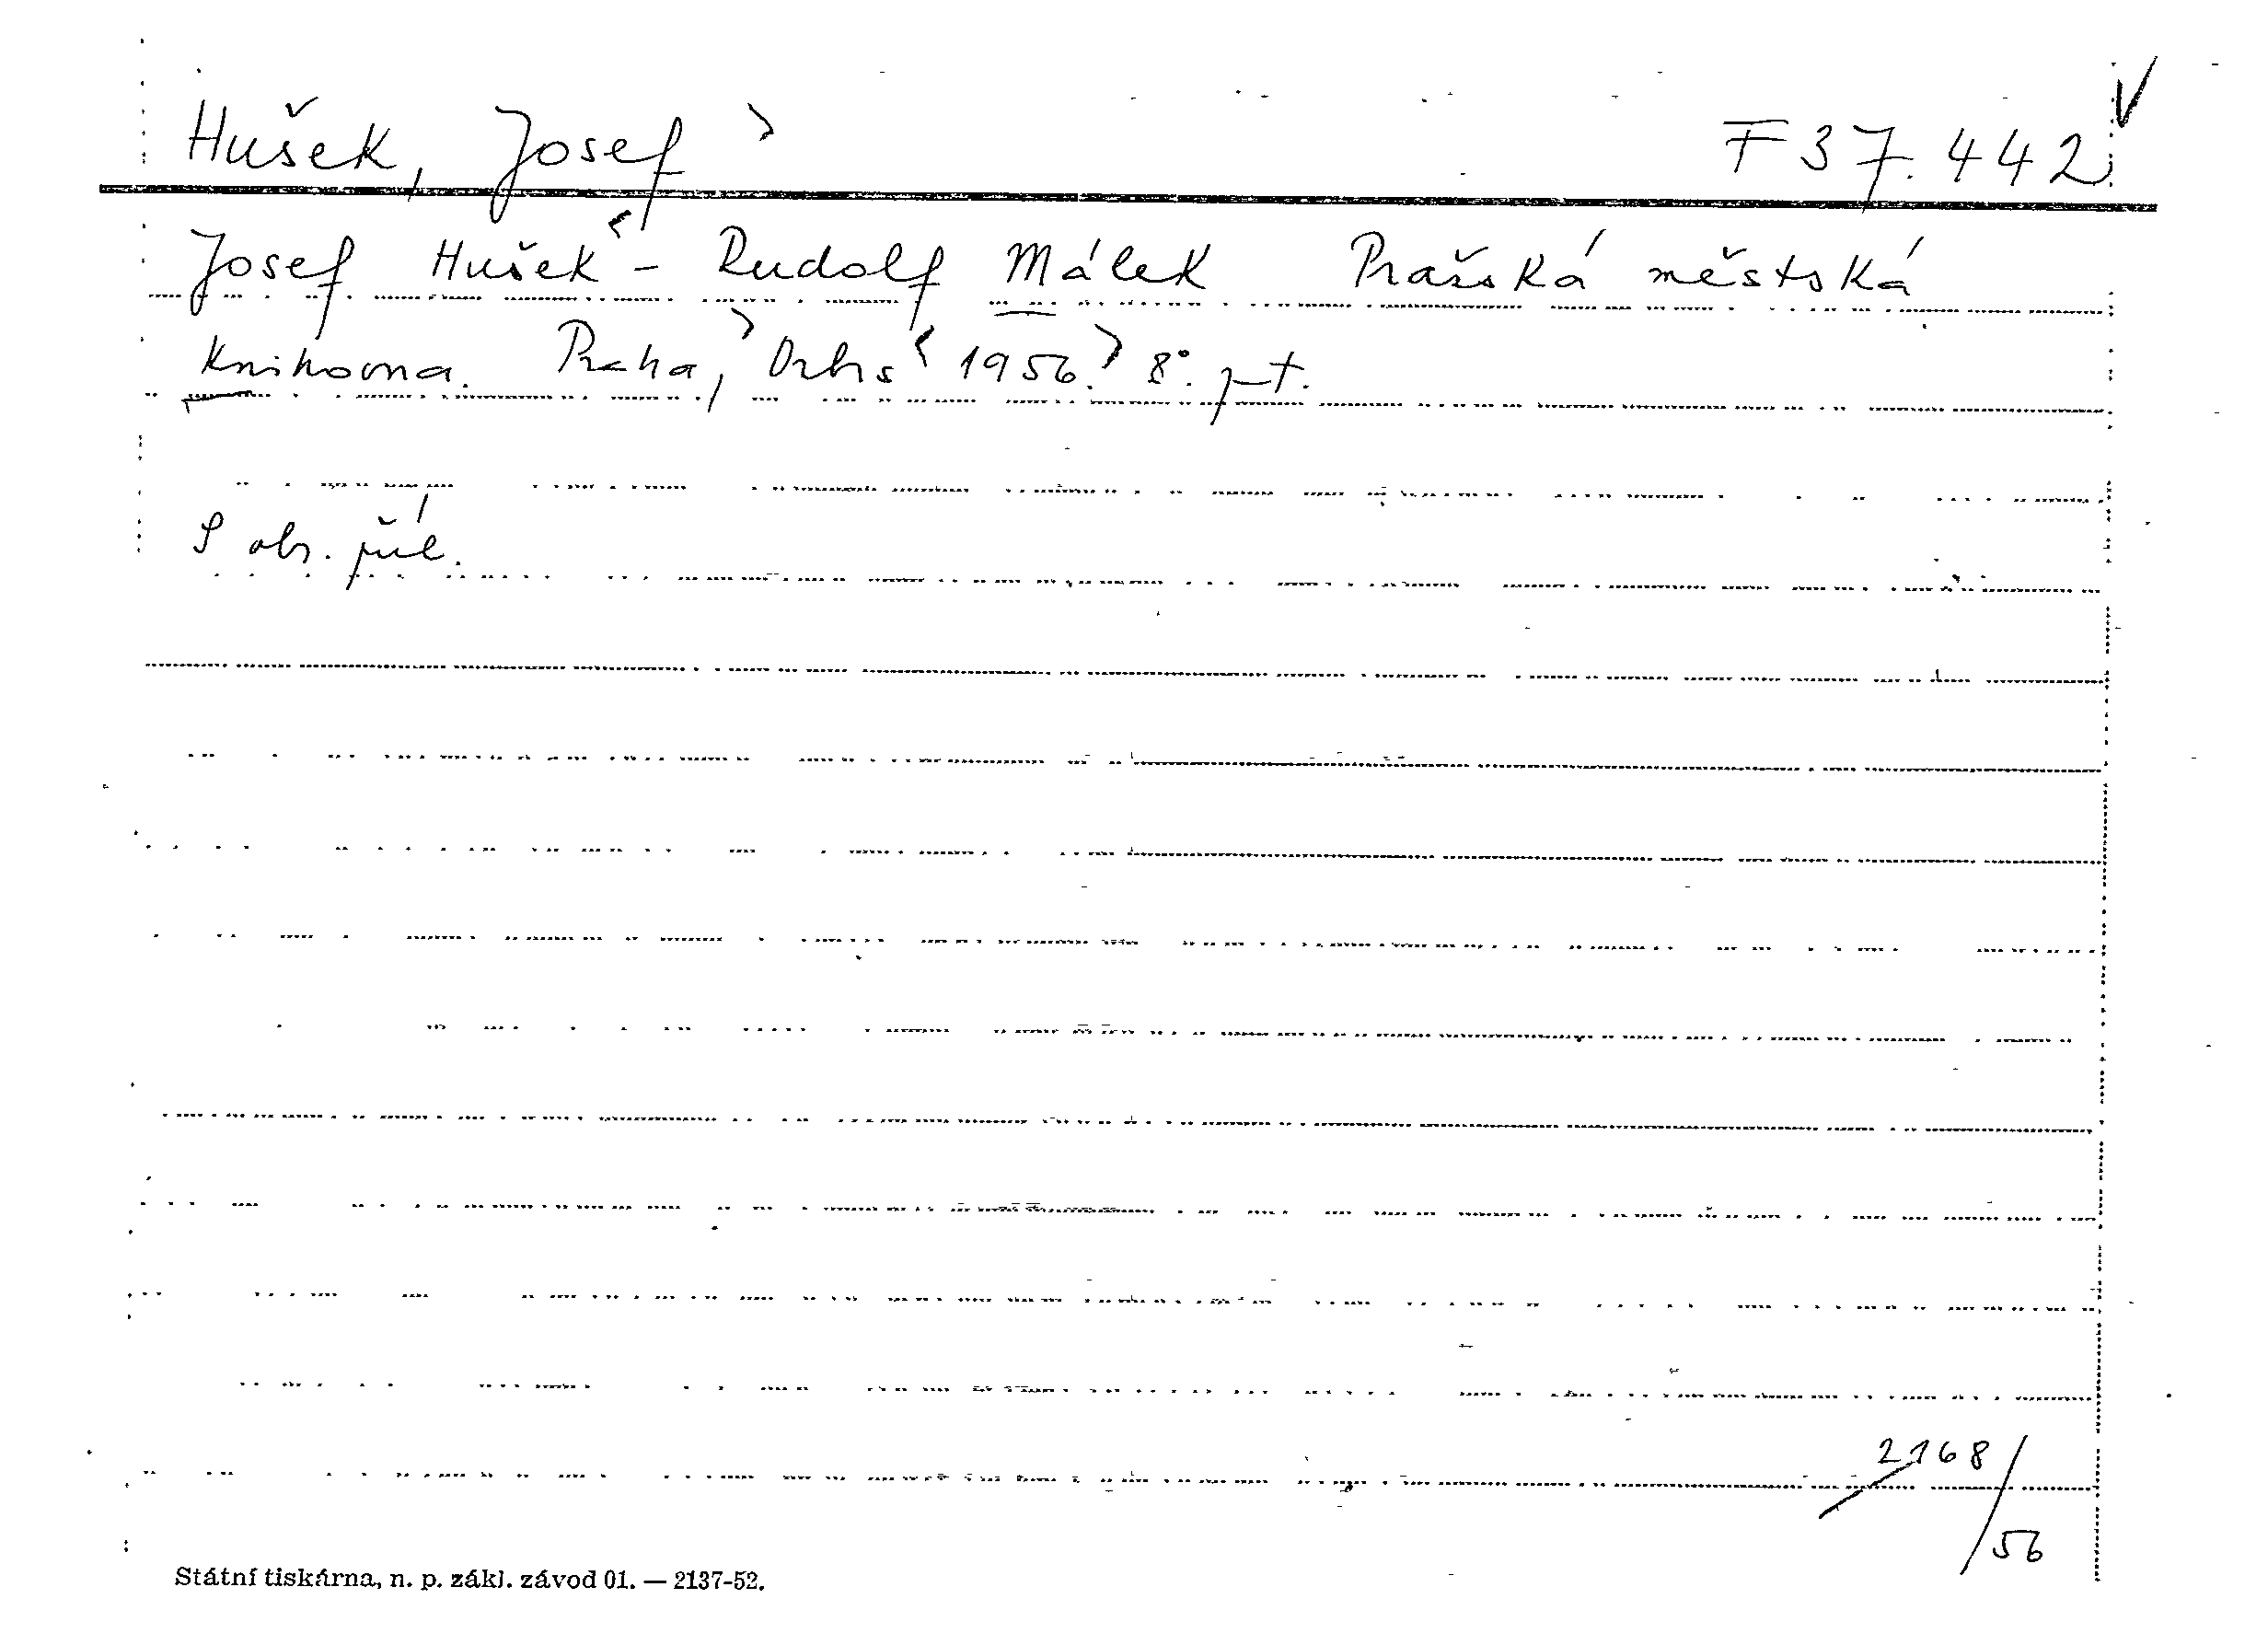 Hušek, Josef F 37.442
Josef Hušek - Rudolf Málek Pražská městská
knihovna. Praha, Orbis 1956. 8°.
S obr. příl.
2168/
56
Státní tiskárna, n. p. zákl. závod 01. — 2137-52.